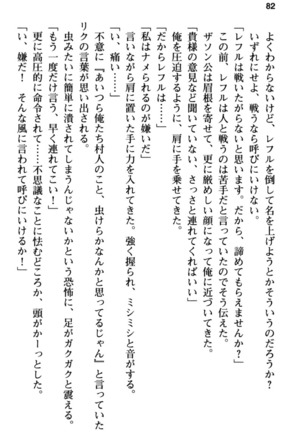 82
よくわからないけど、レフルを倒して名を上げようとかそういうのだろうか?
いずれにせよ、戦うなら呼びにいけない。
「レフルは戦いたがらないと思います。だから、諦めてもらえませんか?」
この前、レフルは人と戦うのは苦手だと言っていたのでそう伝えた。
ザソン公は眉根を寄せて、更に厳しい顔になって俺に近づいてきた。
「貴様の意見など聞いていない、さっさと連れてくればいい」
俺を圧迫するように、肩に手を乗せてきた。
「だからレフルは……」
「私はナメられるのが嫌いだ」
言いながら肩に置いた手に力を入れてきた。強く握られ、ミシミシと音がする。
「い、痛い……」
不意に『あいつら俺たち村人のこと、虫けらかなんかと思ってるじゃん』と言っていた
リクの言葉が思い出される。
虫みたいに簡単に潰されてしまうんじゃないかという恐怖に、足がガクガクと震える。
「もう一度だけ言う、早く連れてこい!」
更に高圧的に命令されて……不思議なことに怯むどころか、頭がかーっとした。
「い、嫌だ! そんな風に言われて呼びにいけるか!」